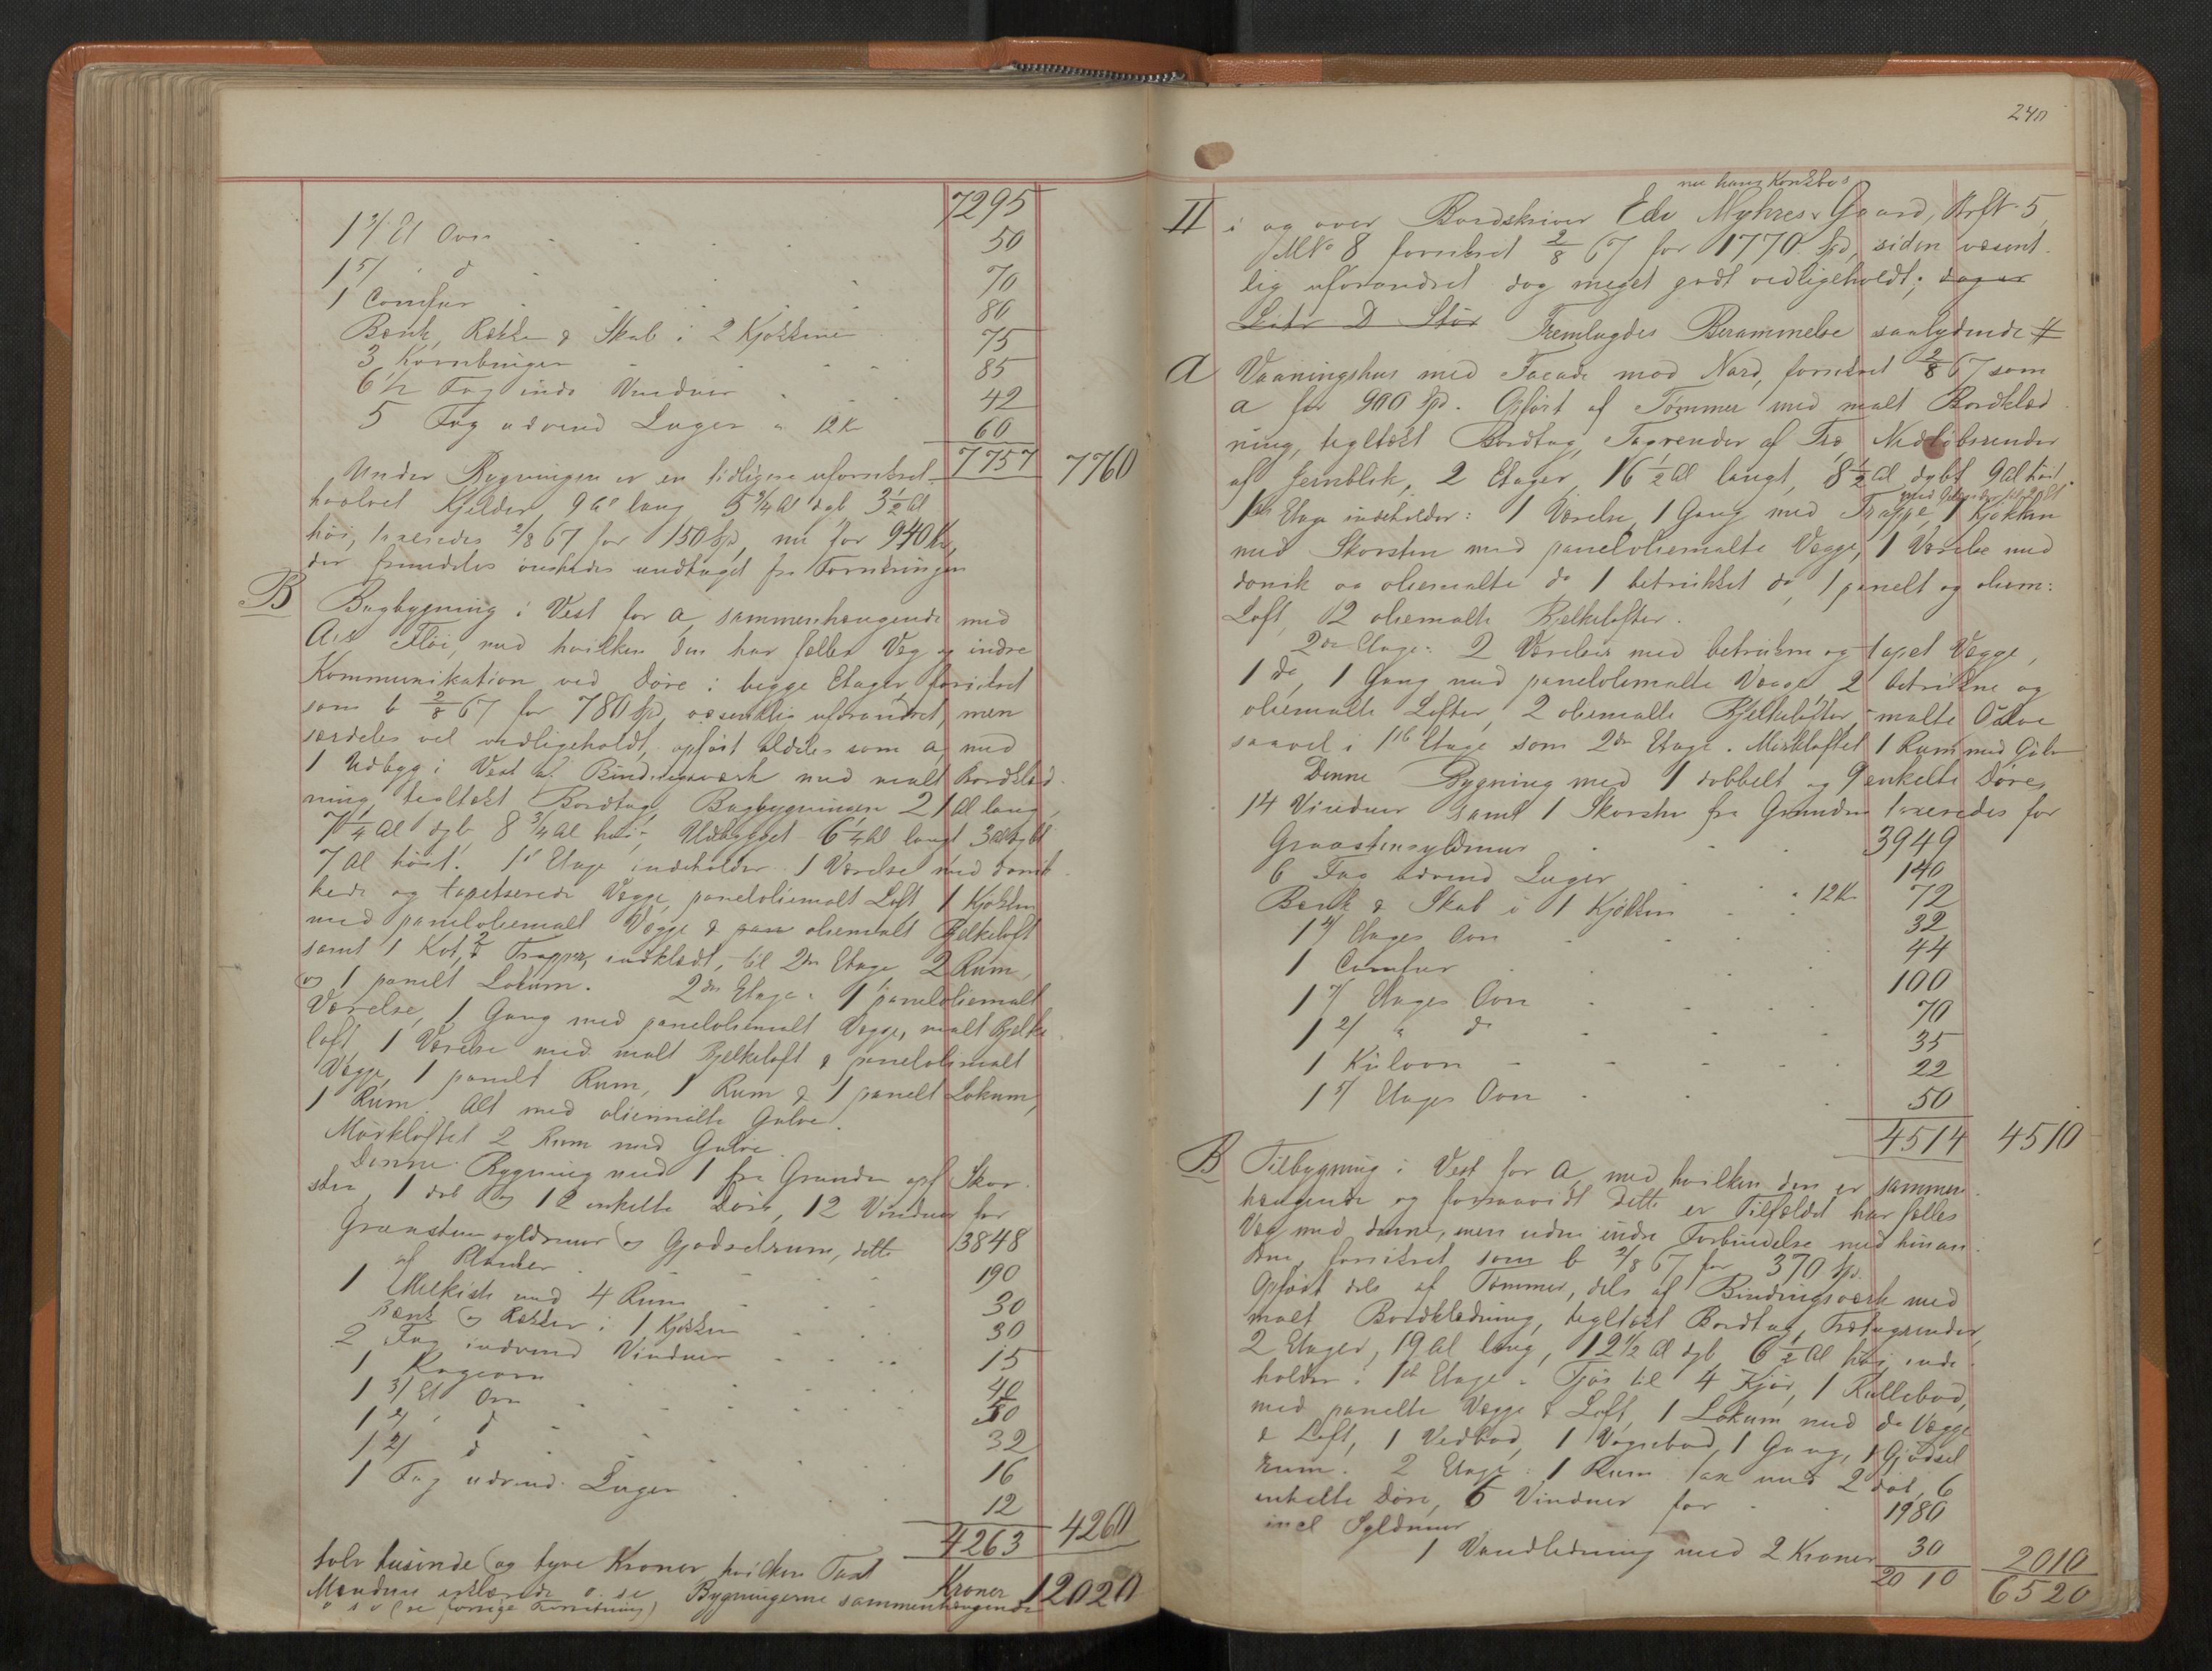 7295
1 3/ Et Ovn 50
1 5/ " d 70
1 Comfur 80
Bænk, Rækker & Skab i 2 Kjøkkener 75
3 Kornbinger 85
6 1/2 Fag indv Vinduer 42
5 Fag udvend Luger a 12 Kr 60
7757 7760
Under Bygningen er en tidligere uforsikret
hvælvet Kjelder, 9 Al lang 5 3/4 Al dyb 3 1/2 Al
høi, taxeredes 2/8 67 for 150 Spd, nu for 940 Kr,
der fremdeles ønskedes undtaget fra Forsikringen
B Bagbygning i Vest for A, sammenhængende med
A's Fløi, med hvilken den har fælles Væg og indre
Kommunikation ved Døre i begge Etager, forsikret
som b 2/8 67 for 780 Spd, væsentlig uforandret, men
særdeles vel vedligeholdt, opført aldeles som A, med
1 Udbyg i Vest af Bindingsværk med malt Bordklæd-
ning, tegltækt Bordtag, Bagbygningen 21 Al lang,
7 1/4 Al dyb, 8 3/4 Al høi; Udbygget 6 1/4 Al langt 3 Al dybt
7 Al høit. 1st Etage indeholder 1 Værelse med donik-
kede og tapetserede Vægge, paneloliemalt Loft, 1 Kjøkken
med paneloliemalt Vægge & oliemalt Bjelkeloft
samt 1 Kot, 2 Trapper, indklædt, til 2den Etage, 2 Rum,
og 1 panelt Lokum. 2den Etage: 1 paneloliemalt
Værelse, 1 Gang med paneloliemalt Vægge, malt Bjelke-
loft, 1 Værelse med malt Bjelkeloft & paneloliemalt
Vægge, 1 panelt Rum, 1 Rum & 1 panelt Lokum,
1 Rum. Alt med oliemalte Gulve.
Mørkloftet 2 Rum med Gulve.
Denne Bygning med 1 fra Grunden opf Skor-
sten, 1 dob og 12 enkelte Døre, 12 Vinduer for
Graastensyldmur og Gjødselrum, dette 3848
af Planker 190
1 Melkiste med 4 Rum 30
Bænk og Rækker i 1 Kjøkken 30
2 Fag indvend Vinduer 15
1 Bageovn 40
1 3/ Et Ovn 50
1 2/ " d 32
1 2/ d 16
1 Fag udvend. Luger 12
4263 4260
tolv tusinde og tyve Kroner, hvilken Taxt Kroner 12020
Mændene erklærede o. se Bygningerne sammenhængende
o s v (se forrige Forretning)
240
nu hans Konkbos
II i og over Bordskriver Edv Myhres Gaard, Strft 5,
M No 8 forsikret 2/8 67 for 1770 Spd, siden væsent-
lig uforandret dog meget godt vedligeholdt; dog er
Litr D Stør Fremlagdes Berammelse saalydende #
A Vaaningshus med Facade mod Nord, forsikret 2/8 67 som
a for 900 Spd. Opført af Tømmer med malt Bordklæd-
ning, tegltækt Bordtag, Tagrender af Træ Nedløbsrender
af Jernblik, 2 Etager, 16 1/2 Al langt, 8 1/2 Al dybt 9 Al høit.
1ste Etage indeholder: 1 Værelse, 1 Gang med Trappe, 1 Kjøkken
med Skorsten med paneloliemalte Vægge, 1 Værelse med
donik og oliemalte do 1 betrukket do, 1 panelt og oliem:
Loft, 2 oliemalte Bjelkelofter.
2den Etage: 2 Værelser med betrukne og tapet Vægge,
1 do, 1 Gang med paneloliemalte Vægge, 2 betrukne og
oliemalte Lofter, 2 oliemalte Bjelkelofter, malte Gulve
saavel i 1ste Etage som 2den Etage. Mørkloftet 1 Rum med Gulv
Denne Bygning med 1 dobbelt og 9 enkelte Døre,
14 Vinduer samt 1 Skorsten fra Grunden taxeredes for
Graastensyldmur 3949
6 Fag udvend Luger 140
Bænk & Skab i 1 Kjøkken " 12 Kr 72
1 2/ Etages Ovn 32
1 Comfur 44
1 3/ Etages Ovn 100
1 2/ " d 70
1 Kulovn 35
22
1 3/ Etages Ovn 50
4514 4510
B Tilbygning i Vest for A, med hvilken den er sammen-
hængende og forsaavidt dette er Tilfældet har fælles
Væg med denne, men uden indre Forbindelse med hinan-
den, forsikret som b 2/8 67 for 370 Spd.
Opført dels af Tømmer, dels af Bindingsværk med
malt Bordklædning, tegltækt Bordtag, Trætagrender,
2 Etager, 19 Al lang, 12 1/2 Al dyb 6 1/2 Al høi, inde-
holder: 1ste Etage: Fjøs til 4 Kjør, 1 Rullebod,
med panelte Vægge & Loft, 1 Lokum med do Vægge
& Loft, 1 Vedbod, 1 Vognbod, 1 Gang, 1 Gjødsel
rum. 2 Etage: 1 Rum. Tax med 2 dob, 6
enkelte Døre, 6 Vinduer for 1980
incl Syldmur
1 Vandledning med 2 Kraner 30 2010
2010 6520